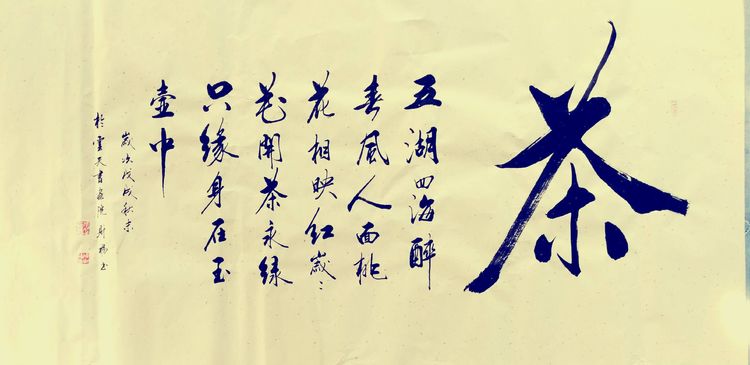 茶
五湖四海醉
春風人面桃
花相映红歲々
花開茶永绿
只缘身在玉
壺中
歲次戊戌秋末
於雲天書画院